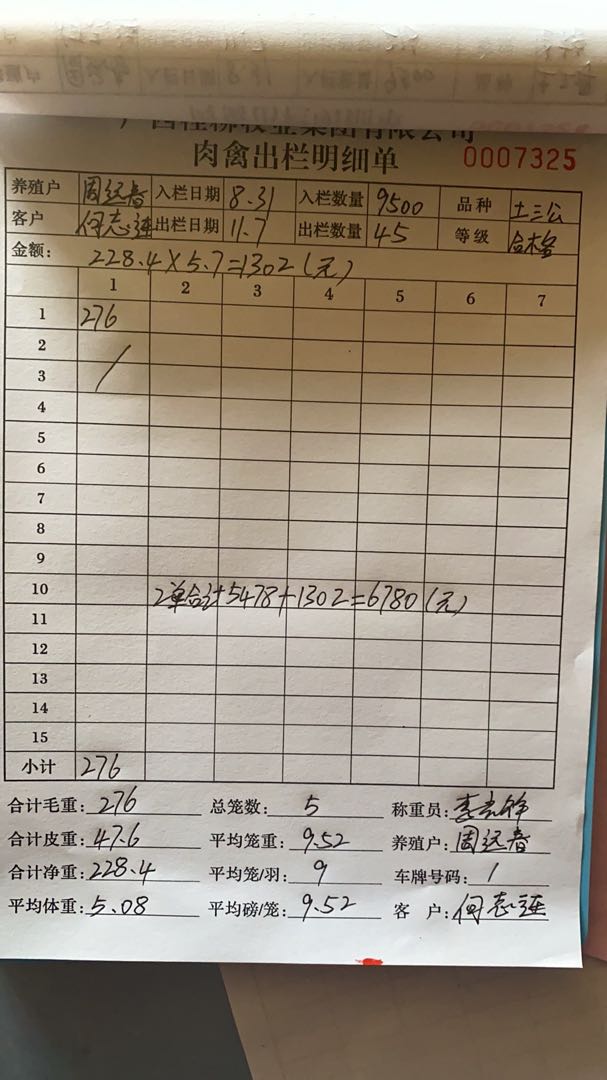 肉禽出栏明细单 0007325
养殖户 周远春 入栏日期 8.31 入栏数量 9500 品种 土三公
客户 何志连 出栏日期 11.7 出栏数量 45 等级 合格
金额: 228.4×5.7=1302(元)
1 2 3 4 5 6 7
1 276
2
3
4
5
6
7
8
9
10 2单合计5478+1302=6780(元)
11
12
13
14
15
小计 276
合计毛重: 276 总笼数: 5 称重员:
合计皮重: 47.6 平均笼重: 9.52 养殖户: 周远春
合计净重: 228.4 平均笼/羽: 9 车牌号码: /
平均体重: 5.08 平均磅/笼: 9.52 客 户: 何志连